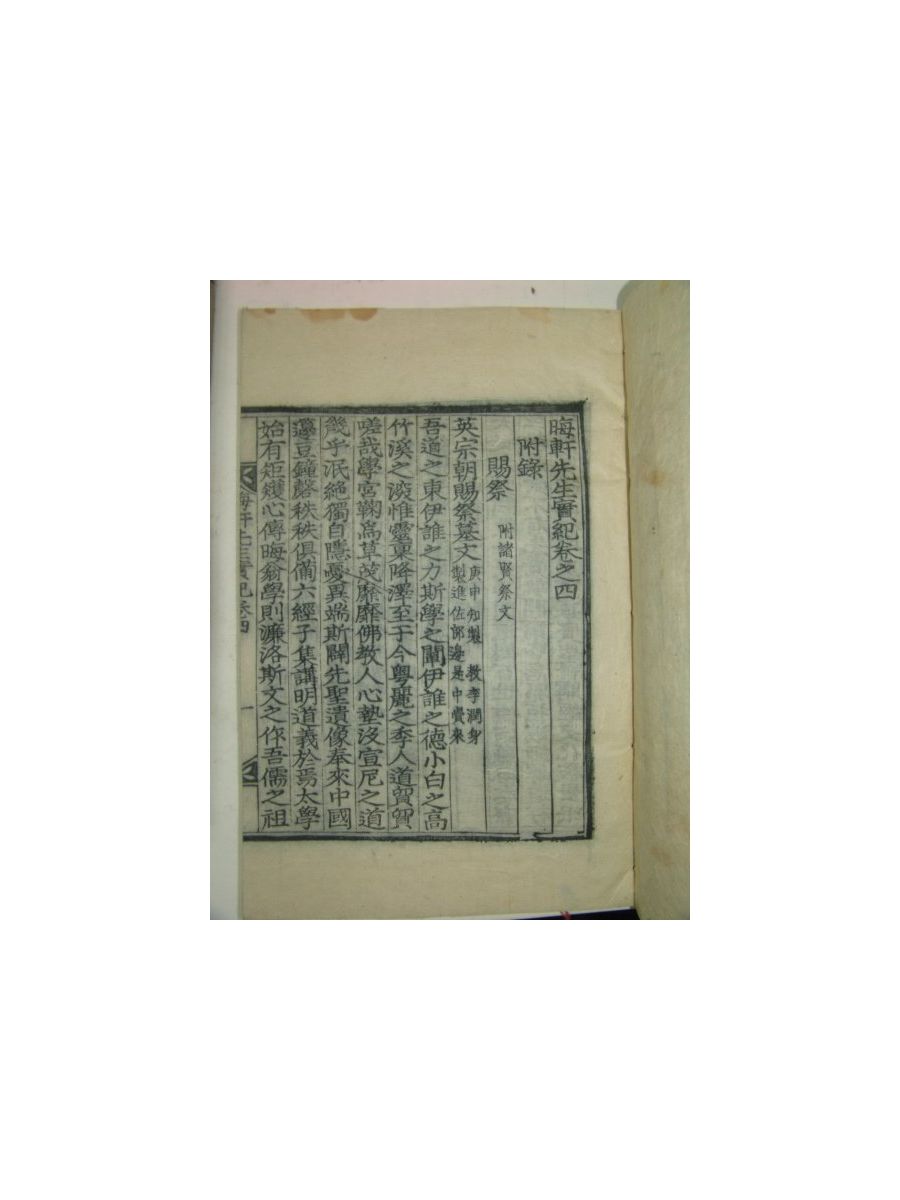 晦軒先生實紀卷之四
附錄
賜祭 附諸賢祭文
英宗朝賜祭墓文 庚申知製教李潤身製進佐郎邊是中賚來
吾道之東伊誰之力斯學之闡伊誰之德小白之高
竹溪之深惟靈稟降澤至于今粤麗之季人道貿貿
嗟哉學宮鞠爲草茂靡靡佛教人心墊沒宣尼之道
幾乎泯絶獨自隱憂異端斯闢先聖遺像奉來中國
籩豆鐘磬秩秩俱備六經子集講明道義於焉太學
始有矩矱心傳晦翁學則濂洛斯文之作吾儒之祖
晦軒先生實紀卷四 一